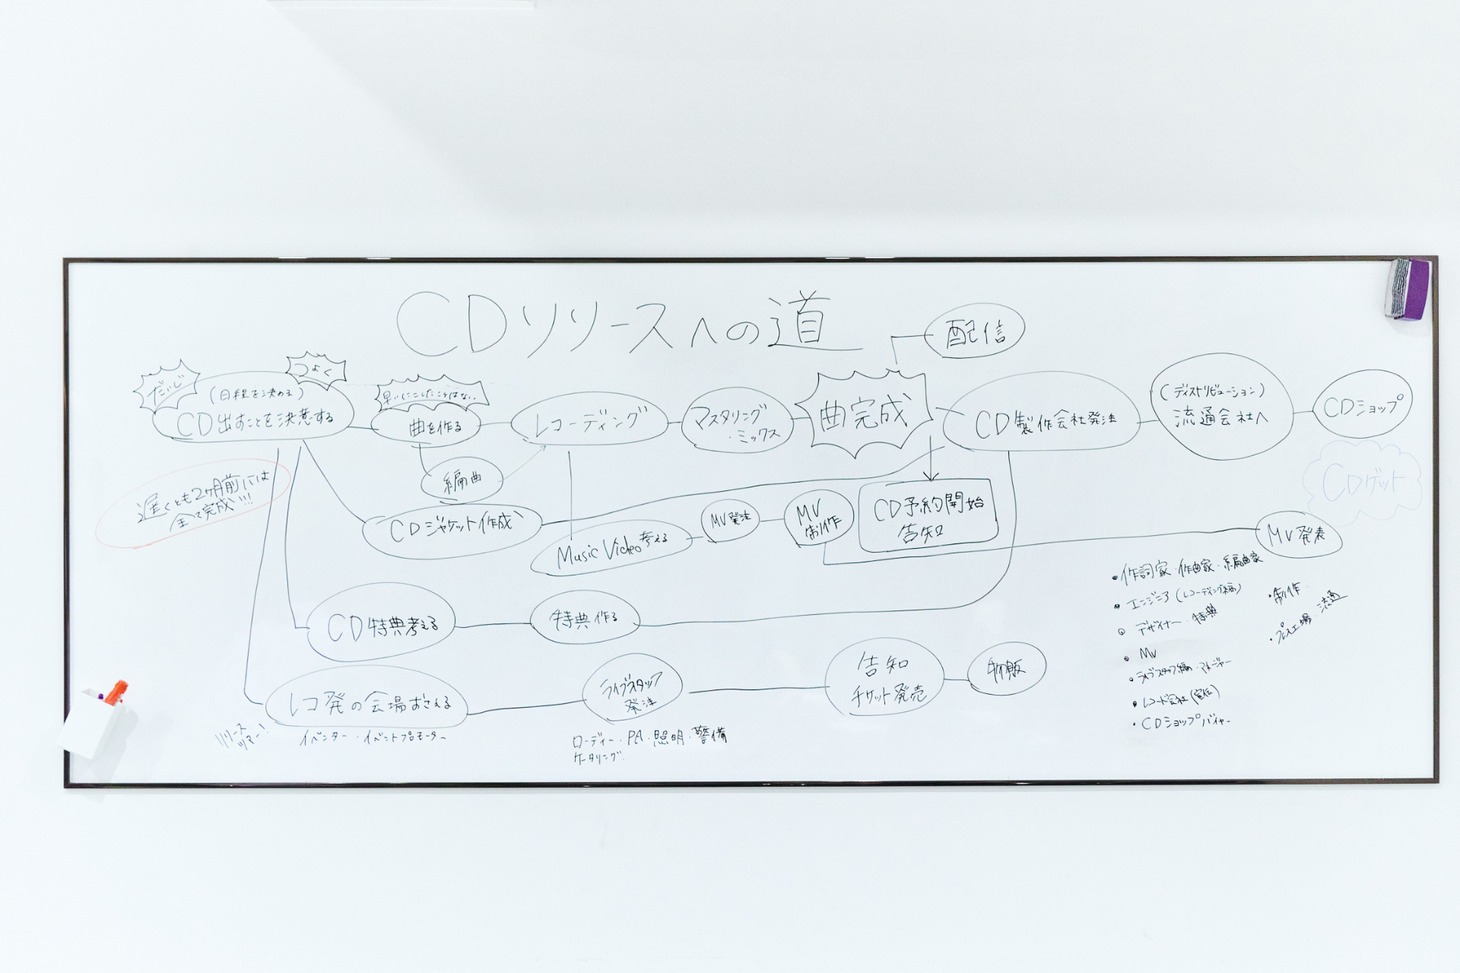 CDリリースへの道
配信
だいじ
つよく
(日程を決める)
CD出すことを決意する
早いにこしたことはない…
曲を作る
編曲
レコーディング
マスタリング
・ミックス
曲完成
CD製作会社発注
(ディストリビューション)
流通会社へ
CDショップ
CDゲット
遅くとも2ヶ月前には
全て完成!!!
CDジャケット作成
Music Video考える
MV発注
MV
制作
CD予約開始
告知
MV発表
CD特典考える
特典作る
レコ発の会場おさえる
リリース
ツアー!
イベンター・イベントプロモーター
ライブスタッフ
発注
ローディー・PA・照明・警備
ケータリング
告知
チケット発売
物販
・作詞家 作曲家・編曲家
・エンジニア(レコーディング)
・デザイナー・特典
・MV
・ライブスタッフ・マネージャー
・レコード会社(宣伝)
・CDショップバイヤー
・制作
・プレス工場 流通